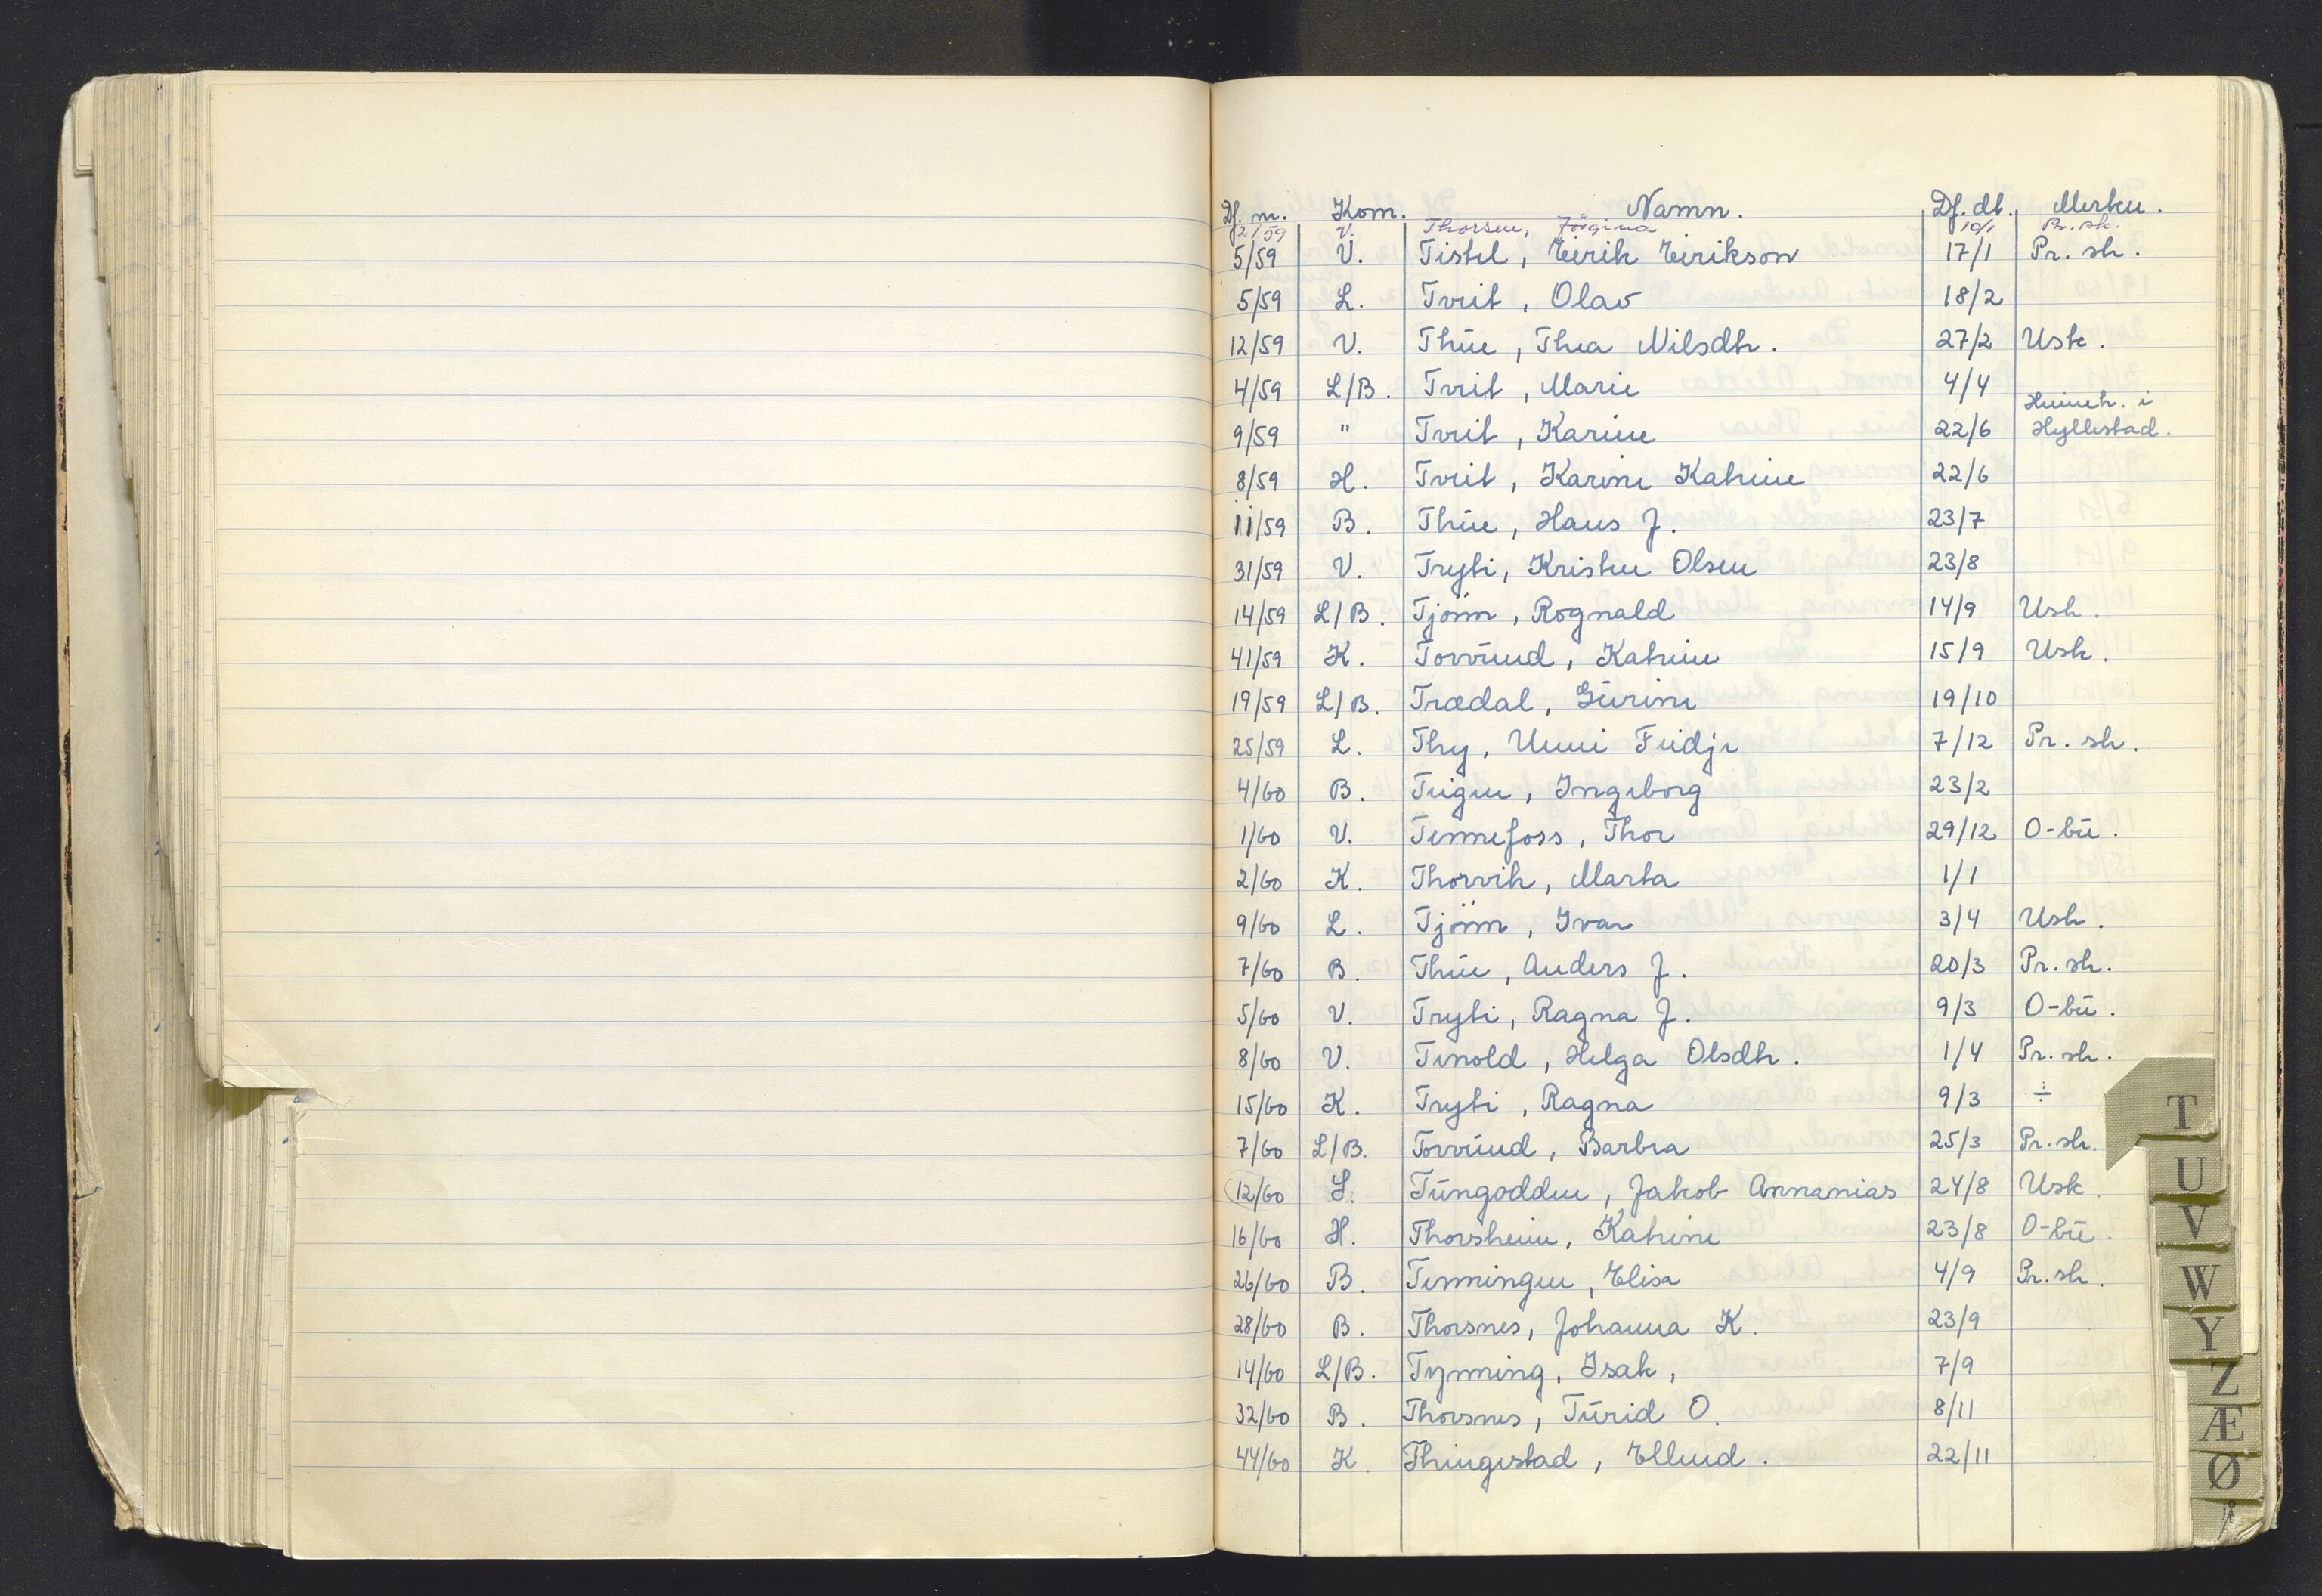 Df. nr. Kom. Namn. Df. dt. Merkn.
2/59 V. Thorsen, Jørgina 10/1 Pr. sk.
5/59 V. Tistel, Eirik Eirikson 17/1 Pr. sk.
5/59 L. Tveit, Olav 18/2
12/59 V. Thue, Thea Nilsdtr. 27/2 Usk.
4/59 L/B. Tveit, Marie 4/4
9/59 " Tveit, Karine 22/6 Heimeh. i Hyllestad.
8/59 H. Tveit, Karine Katrine 22/6
11/59 B. Thue, Hans J. 23/7
31/59 V. Tryti, Kristen Olsen 23/8
14/59 L/B. Tjönn, Rognald 14/9 Usk.
41/59 K. Torvund, Katrine 15/9 Usk.
19/59 L/B. Trædal, Gurine 19/10
25/59 L. Thy, Unni Fridje 7/12 Pr. sk.
4/60 B. Teigen, Ingeborg 23/2
1/60 V. Tennefoss, Thor 29/12 O-bu.
2/60 K. Thorvik, Marta 1/1
9/60 L. Tjönn, Ivar 3/4 Usk.
7/60 B. Thue, Anders J. 20/3 Pr. sk.
5/60 V. Tryti, Ragna J. 9/3 O-bu.
8/60 V. Tenold, Helga Olsdtr. 1/4 Pr. sk.
15/60 K. Tryti, Ragna 9/3 ÷
7/60 L/B. Torvund, Barbra 25/3 Pr. sk.
12/60 L. Tungodden, Jakob Annanias 24/8 Usk.
16/60 H. Thorsheim, Katrine 23/8 O-bu.
26/60 B. Tenningen, Elisa 4/9 Pr. sk.
28/60 B. Thorsnes, Johanna K. 23/9
14/60 L/B. Tynning, Isak, 7/9
32/60 B. Thorsnes, Turid O. 8/11
44/60 K. Thingestad, Ellend. 22/11
T
U
V
W
Y
Z
Æ
Ø